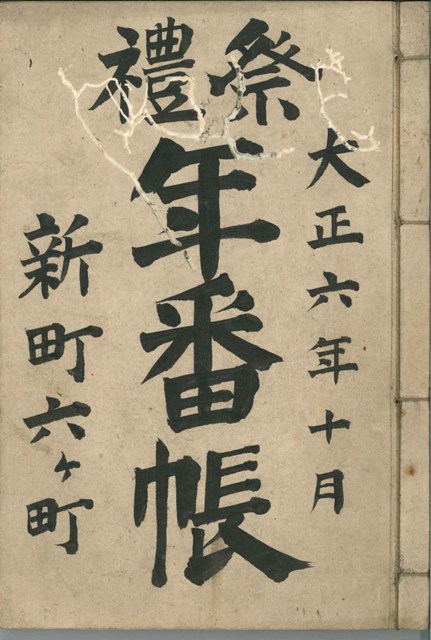 大正六年十月
祭禮
年番帳
新町六ヶ町